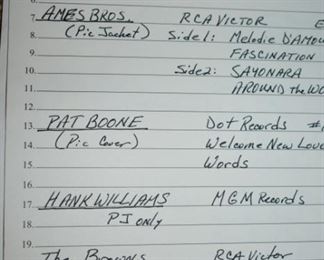 7. AMES BROS. RCA VICTOR E
8. (Pic Jacket) Side 1: Melodie D'AMOU
9. FASCINATION
10. Side 2: SAYONARA
11. AROUND THE WO
12.
13. PAT BOONE Dot Records #1
14. (Pic Cover) Welcome New Love
15. Words
16.
17. HANK WILLIAMS MGM Records
18. PJ only
19.
The Browns RCA Victor